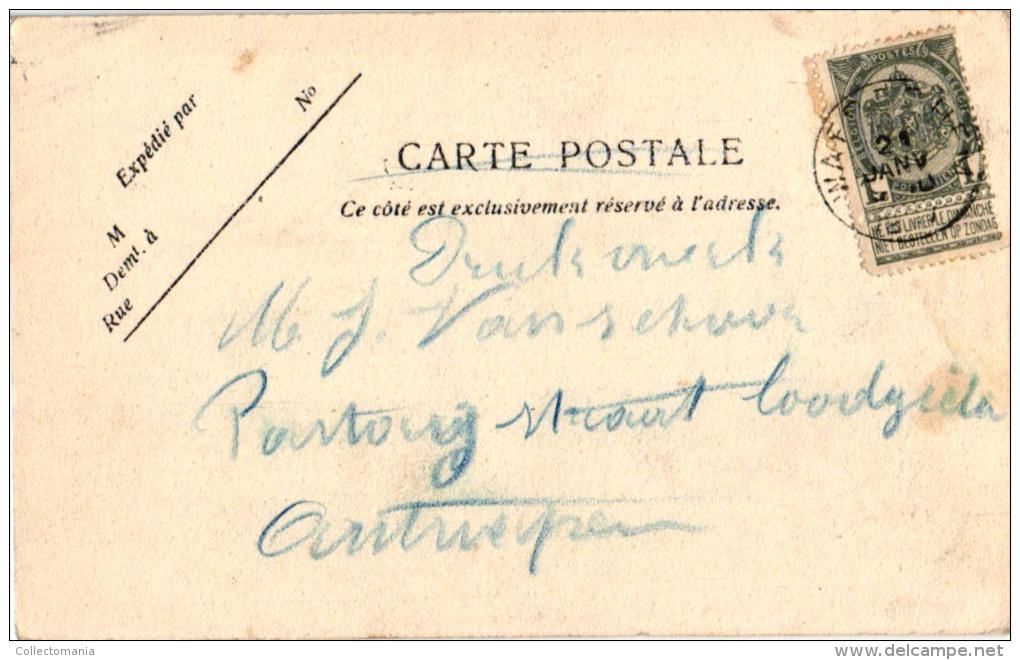 Expédié par
No
M
Demt. à
Rue
CARTE POSTALE
Ce côté est exclusivement réservé à l'adresse.
POSTES
21
JANV
NE PAS LIVRER LE DIMANCHE
NIET BESTELLEN OP ZONDAG
Drukwerk
M J. Vanschoor
straat loodgieter
Antwerpen
© Collectomania
delcampe.net